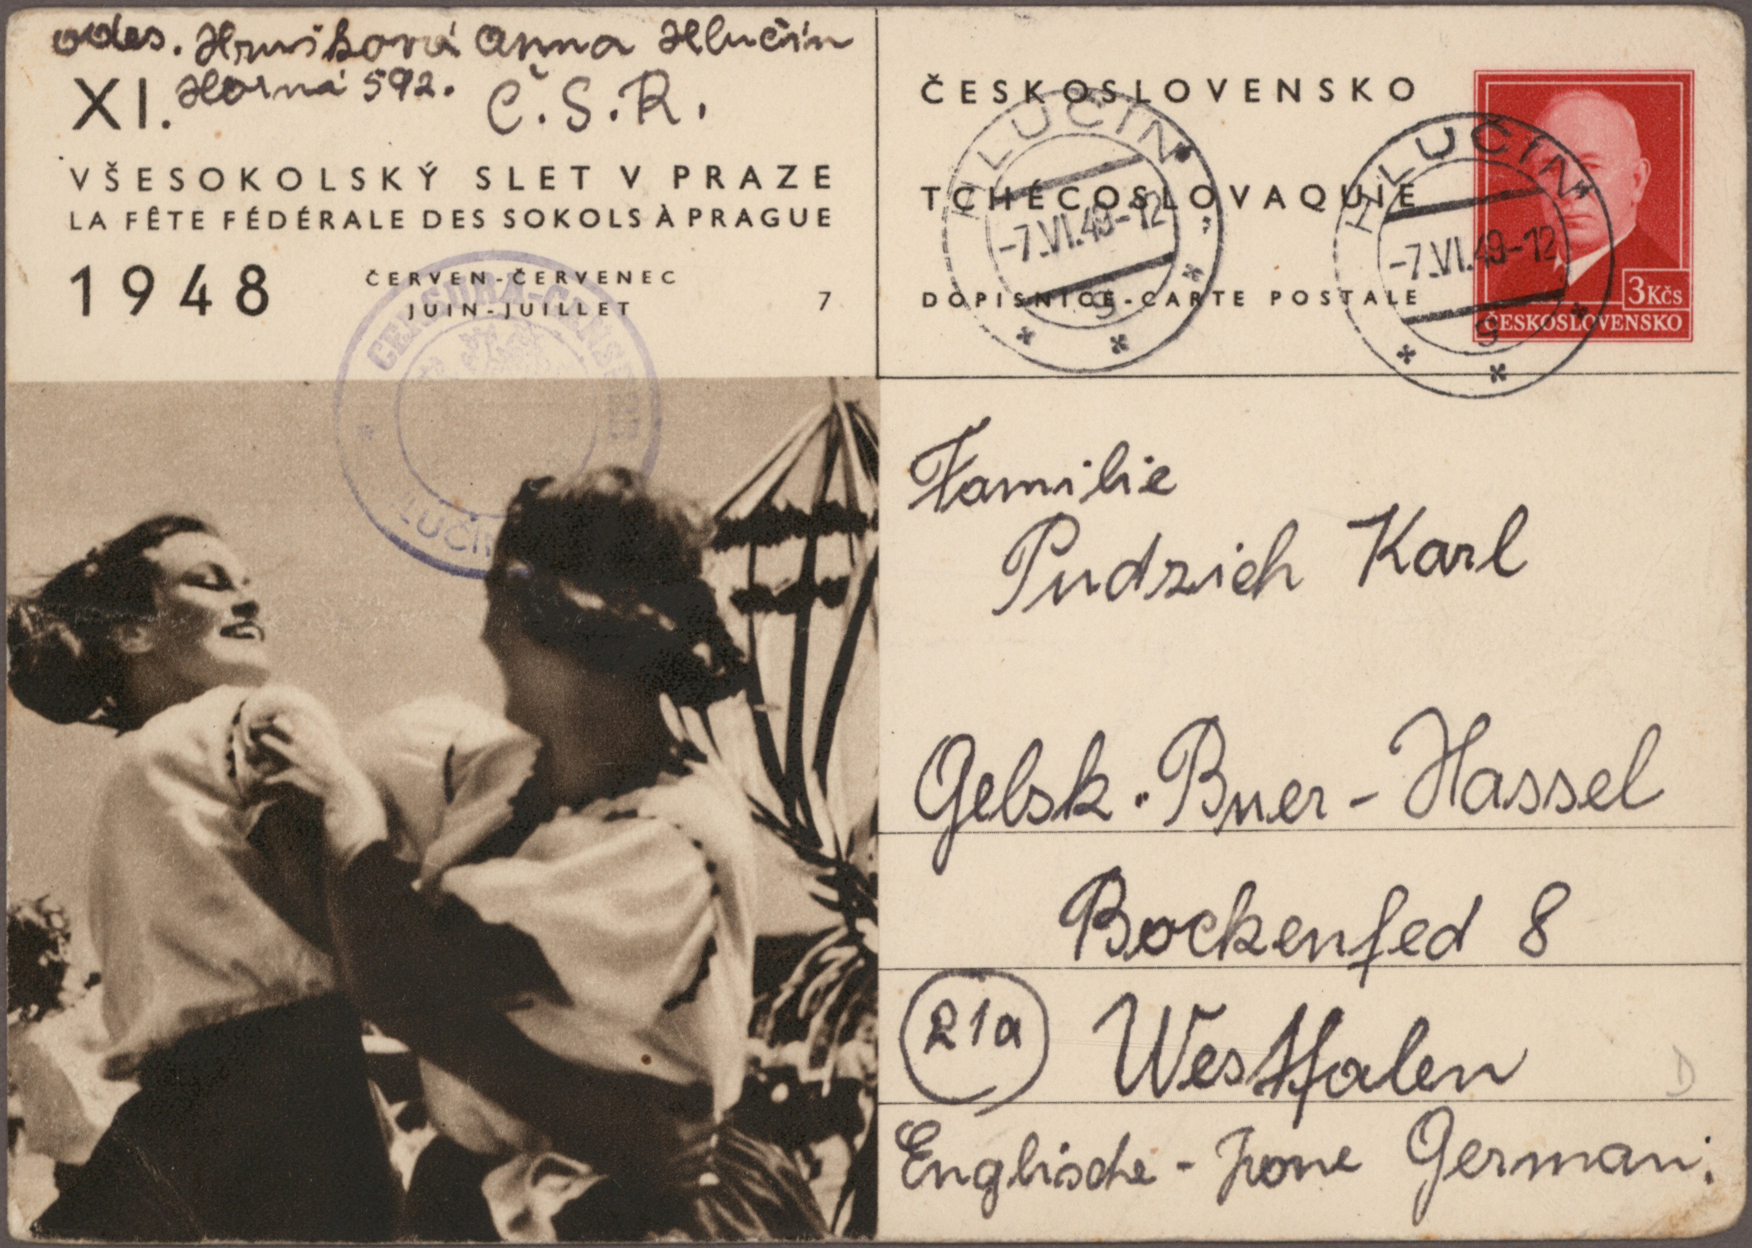 odes. Hrušková Anna Hlučín
Horná 592. Č.S.R.
XI.
VŠESOKOLSKÝ SLET V PRAZE
LA FÊTE FÉDÉRALE DES SOKOLS À PRAGUE
1948
ČERVEN-ČERVENEC
JUIN-JUILLET
7
ČESKOSLOVENSKO
TCHÉCOSLOVAQUIE
DOPISNICE-CARTE POSTALE
3Kčs
ČESKOSLOVENSKO
HLUČÍN
-7.VI.49-12
9
HLUČÍN
-7.VI.49-12
9
Familie
Pudzich Karl
Gelsk.-Buer-Hassel
Bockenfed 8
21a
Westfalen
Englische-Zone German.
D